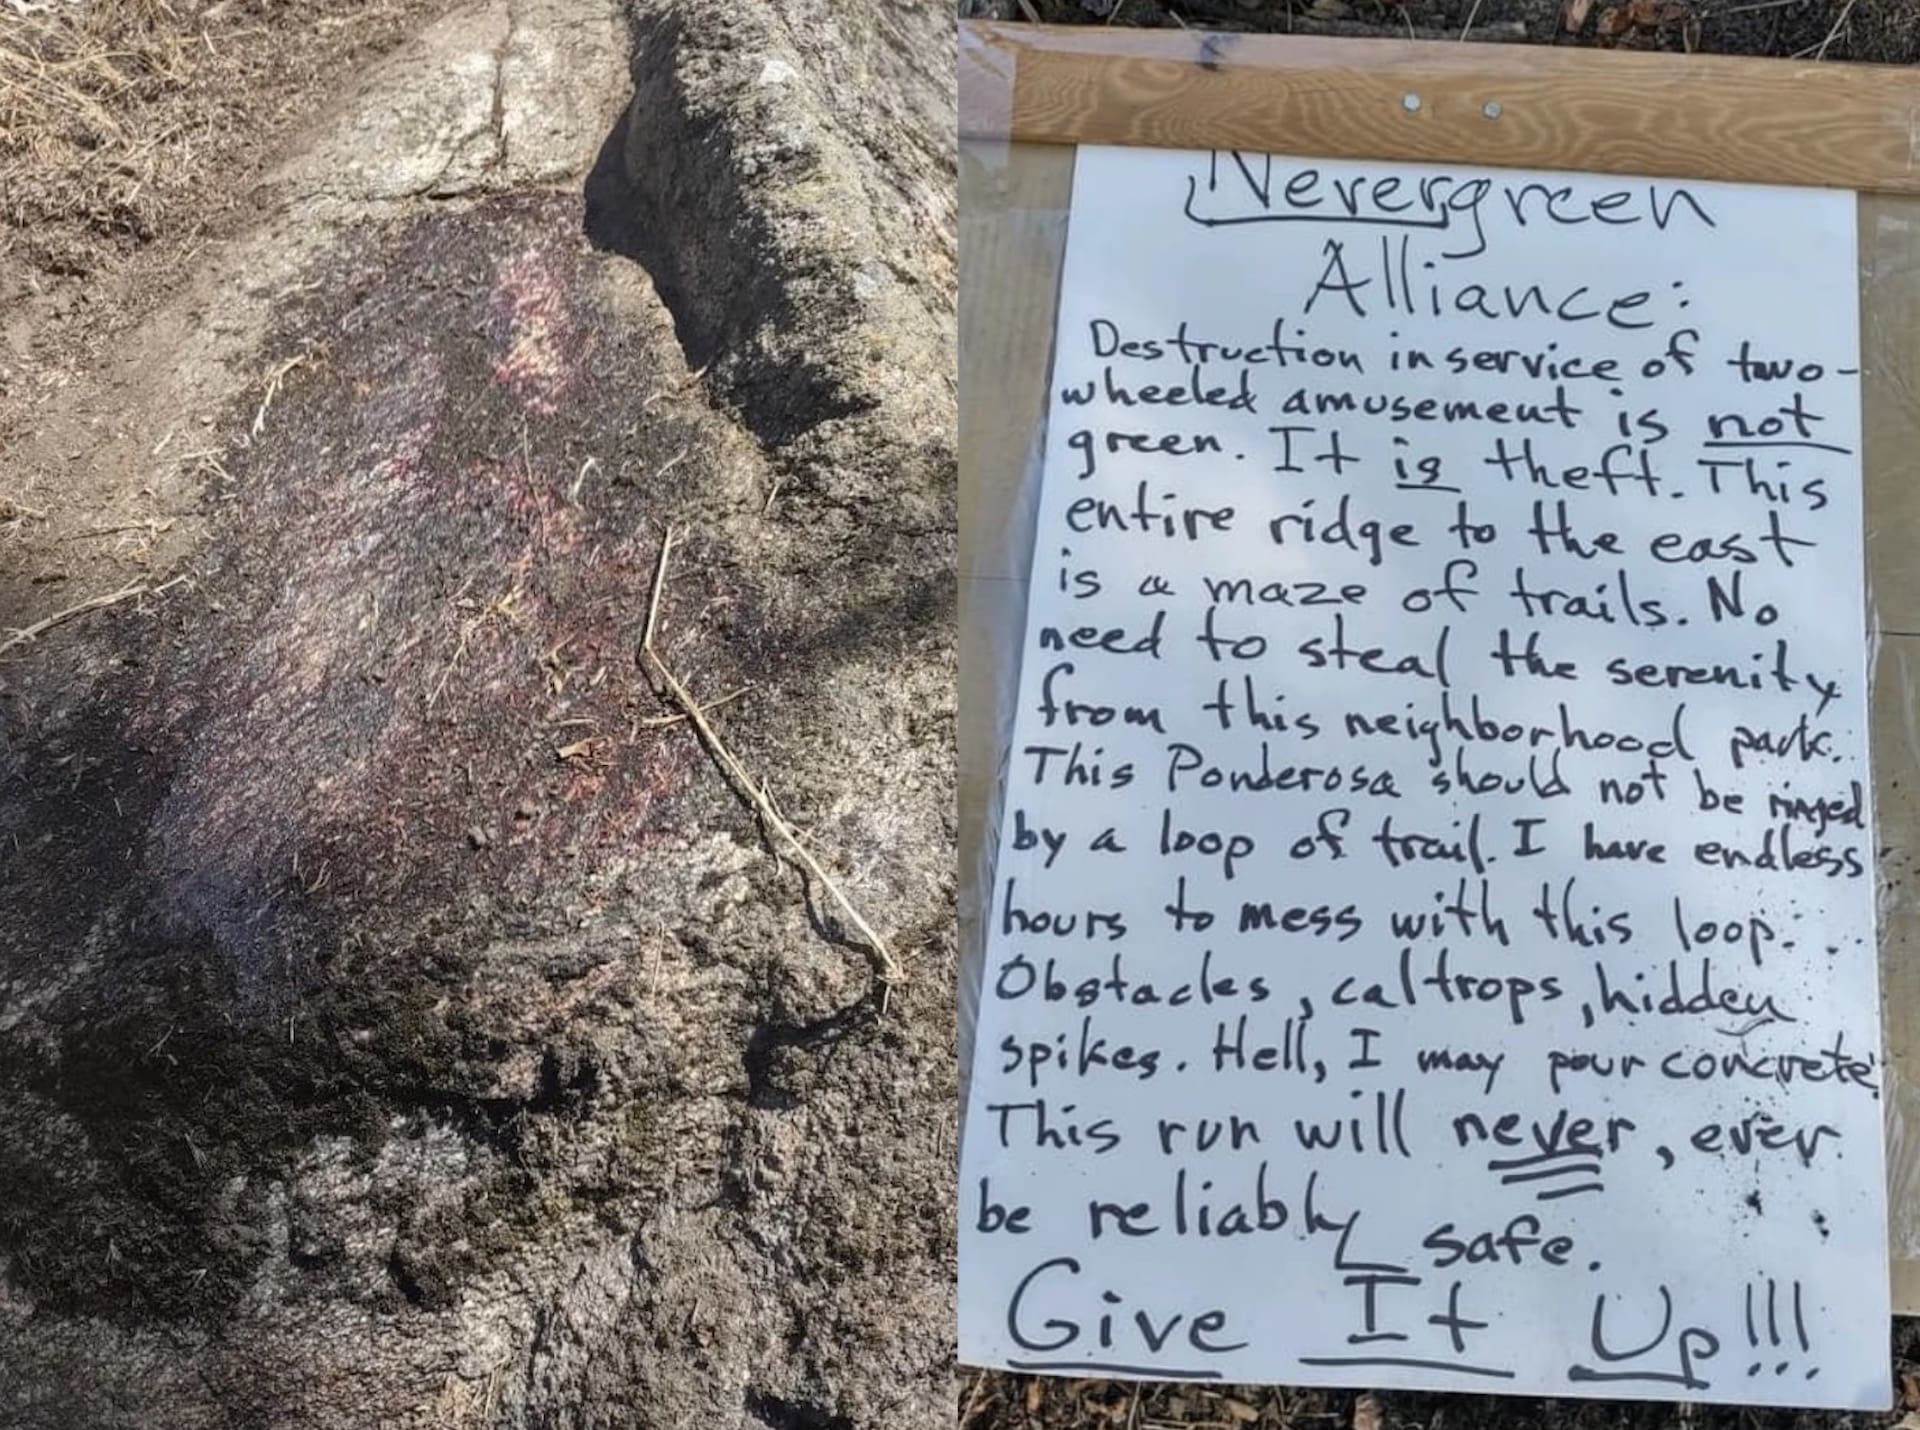 Nevergreen
Alliance:
Destruction in service of two-
wheeled amusement is not
green. It is theft. This
entire ridge to the east
is a maze of trails. No
need to steal the serenity
from this neighborhood park.
This Ponderosa should not be ringed
by a loop of trail. I have endless
hours to mess with this loop.
Obstacles, caltrops, hidden
spikes. Hell, I may pour concrete.
This run will never, ever
be reliably safe.
Give It Up!!!